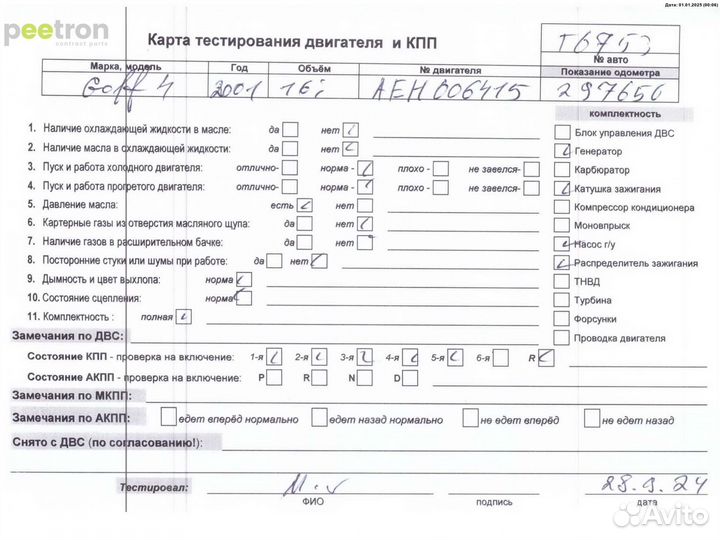 Дата: 01.01.2025 (00:06)
peetron
contract parts
Карта тестирования двигателя и КПП
№ авто
Марка, модель Год Объём № двигателя Показание одометра
Golf 4 2001 16i AEH 006415 297650
комплектность
1. Наличие охлаждающей жидкости в масле: да нет
Блок управления ДВС
2. Наличие масла в охлаждающей жидкости: да нет
Генератор
3. Пуск и работа холодного двигателя: отлично- норма - плохо - не завелся-
Карбюратор
4. Пуск и работа прогретого двигателя: отлично- норма - плохо - не завелся-
Катушка зажигания
5. Давление масла: есть нет
Компрессор кондиционера
6. Картерные газы из отверстия масляного щупа: да нет
Моновпрыск
7. Наличие газов в расширительном бачке: да нет
Насос г/у
8. Посторонние стуки или шумы при работе: да нет
Распределитель зажигания
9. Дымность и цвет выхлопа: норма
ТНВД
10. Состояние сцепления: норма
Турбина
11. Комплектность : полная
Форсунки
Замечания по ДВС:
Проводка двигателя
Состояние КПП - проверка на включение: 1-я 2-я 3-я 4-я 5-я 6-я R
Состояние АКПП - проверка на включение: P R N D
Замечания по МКПП:
Замечания по АКПП: едет вперёд нормально едет назад нормально не едет вперёд не едет назад
Снято с ДВС (по согласованию!):
Тестировал: 28.9.24
ФИО подпись дата
Avito